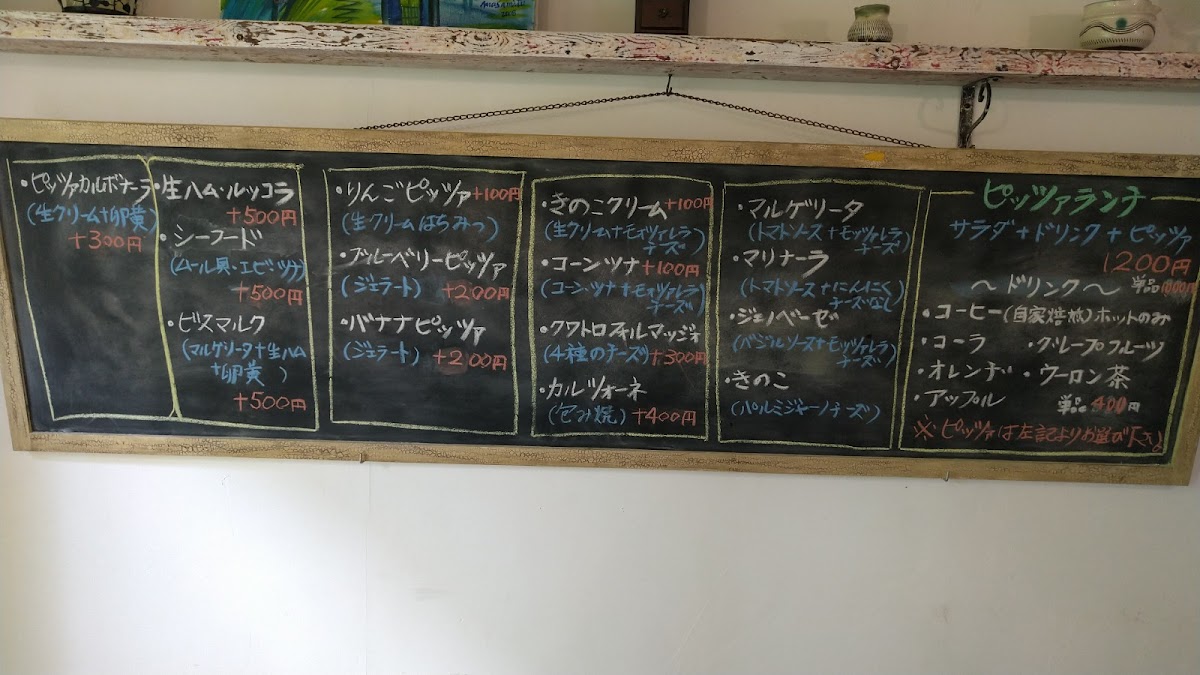 ・ピッツァカルボナーラ
(生クリーム+卵黄)
+300円
・生ハム・ルッコラ
+500円
・シーフード
(ムール貝・エビ・ツブ)
+500円
・ビスマルク
(マルゲリータ+生ハム
+卵黄)
+500円
・りんごピッツァ+100円
(生クリームはちみつ)
・ブルーベリーピッツァ
(ジェラート) +200円
・バナナピッツァ
(ジェラート) +200円
・きのこクリーム+100円
(生クリーム+モッツァレラ
チーズ)
・コーンツナ+100円
(コーン・ツナ+モッツァレラ
チーズ)
・クワトロフォルマッジォ
(4種のチーズ)+300円
・カルツォーネ
(包み焼) +400円
・マルゲリータ
(トマトソース+モッツァレラ
チーズ)
・マリナーラ
(トマトソース+にんにく
チーズなし)
・ジェノベーゼ
(バジルソース+モッツァレラ
チーズ)
・きのこ
(パルミジャーノチーズ)
ピッツァランチ
サラダ+ドリンク+ピッツァ
1200円
〜ドリンク〜 単品1000円
・コーヒー(自家焙煎)ホットのみ
・コーラ ・グレープフルーツ
・オレンヂ ・ウーロン茶
・アップル 単品400円
※ピッツァは左記よりお選び下さい